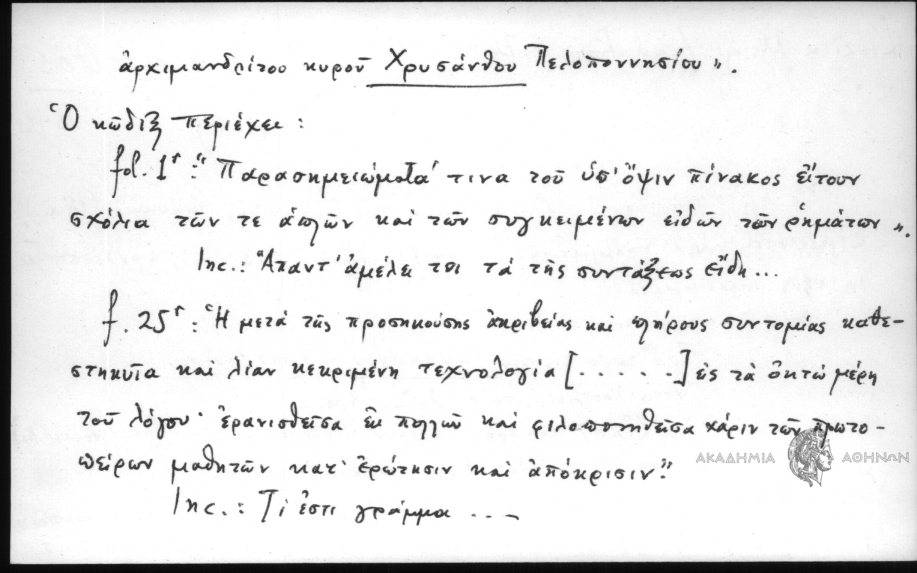 ἀρχιμανδρίτου κυροῦ Χρυσάνθου Πελοποννησίου».
Ὁ κῶδιξ περιέχει:
fol. 1r: "Παρασημειώματά τινα τοῦ ὑπ' ὄψιν πίνακος εἴτουν
σχόλια τῶν τε ἁπλῶν καὶ τῶν συγκειμένων εἰδῶν τῶν ῥημάτων».
Inc.: "Απαντ' ἀμέλει τοι τὰ τῆς συντάξεως εἴδη...
f. 25r: Ἡ μετὰ τῆς προσηκούσης ἀκριβείας καὶ πλήρους συντομίας καθε-
στηκυῖα καὶ λίαν κεκριμένη τεχνολογία [.....] εἰς τὰ ὀκτὼ μέρη
τοῦ λόγου· ἐρανισθεῖσα ἐκ πολλῶν καὶ φιλοπονηθεῖσα χάριν τῶν πρωτο-
πείρων μαθητῶν κατ' ἐρώτησιν καὶ ἀπόκρισιν"
Inc.: Τί ἐστι γράμμα ...
ΑΚΑΔΗΜΙΑ ΑΘΗΝΩΝ